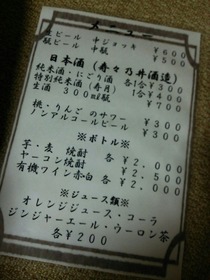 メニュー
生ビール 中ジョッキ ¥600
瓶ビール 中瓶 ¥500
日本酒(寿々乃井酒造)
純米酒・にごり酒 各1合 ¥300
特別純米酒(寿月) 1合 ¥400
生酒 300ml瓶 ¥700
桃・りんごのサワー ¥300
ノンアルコールビール ¥300
※ボトル※
芋・麦 焼酎 各¥2,000
ヤーコン焼酎 ¥2,000
有機ワイン赤白 各¥2,000
※ジュース類※
オレンジジュース・コーラ
ジンジャーエール・ウーロン茶
各¥200